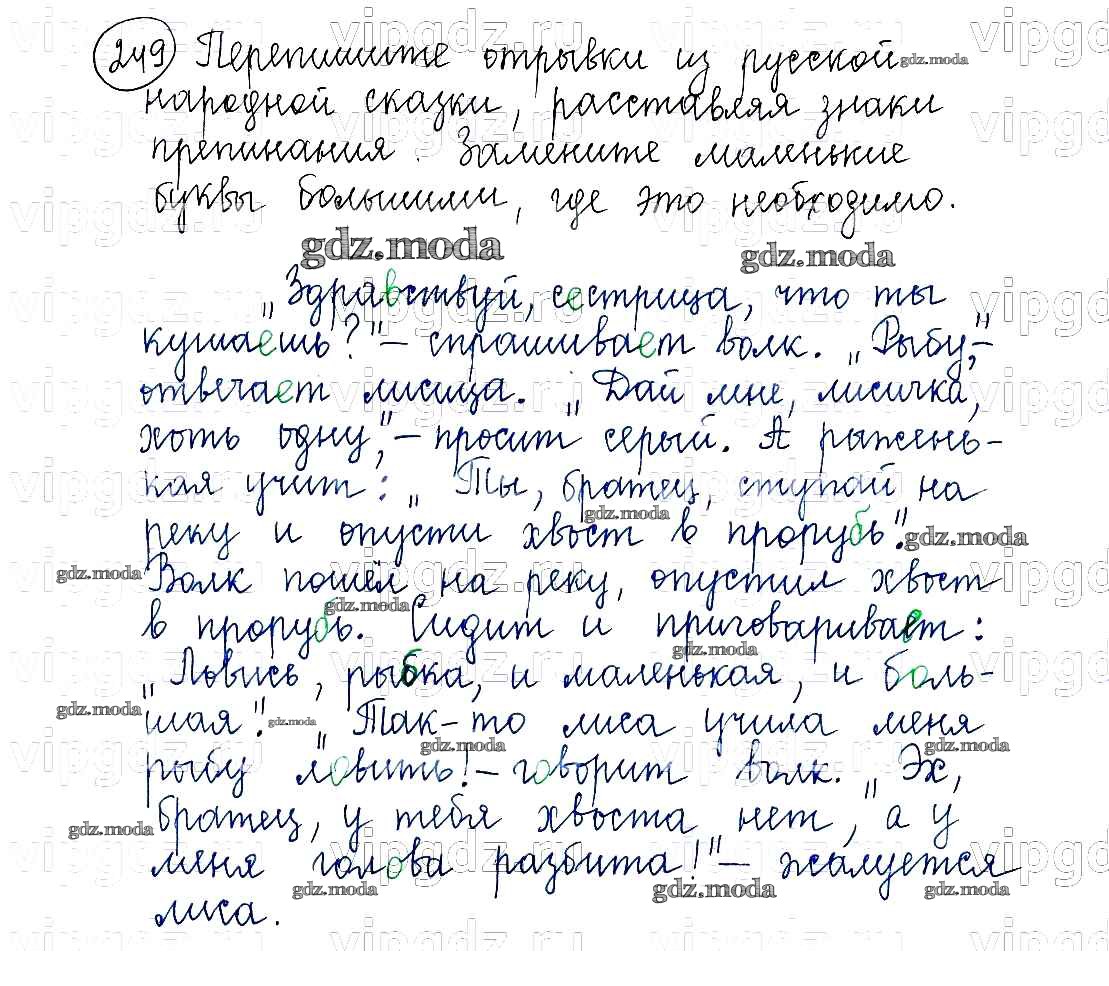 249 Перепишите отрывки из русской
народной сказки, расставляя знаки
препинания. Замените маленькие
буквы большими, где это необходимо.
gdz.moda
„Здравствуй, сестрица, что ты
кушаешь?" – спрашивает волк. „Рыбу," –
отвечает лисица. „Дай мне, лисичка,
хоть одну," – просит серый. А рыжень-
кая учит: „Ты, братец, ступай на
реку и опусти хвост в прорубь".
Волк пошёл на реку, опустил хвост
в прорубь. Сидит и приговаривает:
„Ловись, рыбка, и маленькая, и боль-
шая"! „Так-то лиса учила меня
рыбу ловить! – говорит волк. „Эх,
братец, у тебя хвоста нет, а у
меня голова разбита!" – жалуется
лиса.